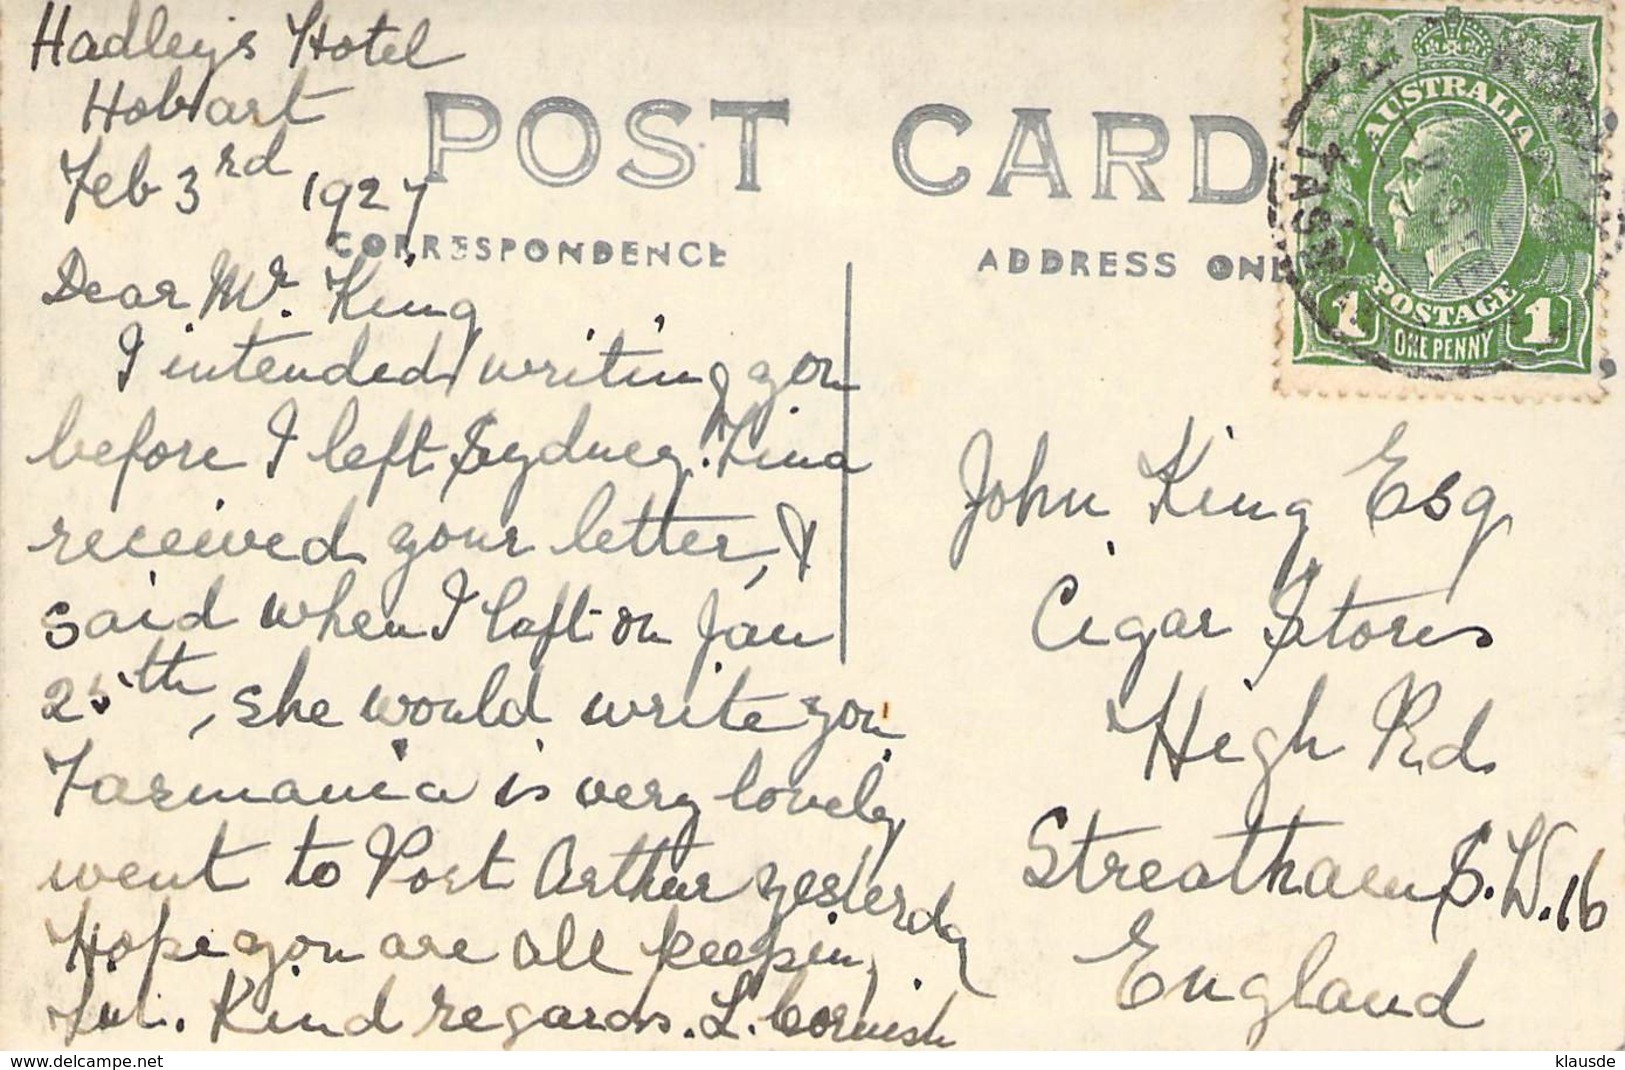 Hadleys Hotel
Hobart
Feb 3rd 1927
POST CARD
CORRESPONDENCE
ADDRESS ONL
Dear Mr. King
I intended writing you
before I left Sydney. Tina
received your letter, &
said when I left on Jan
25th, she would write you
Tasmania is very lovely
went to Port Arthur yesterday
Hope you are all keeping
Kind regards. L. Cornish
AUSTRALIA
POSTAGE
1 ONE PENNY 1
TASMANIA
John King Esq
Cigar Stores
High Rd
Streatham S.W.16
England
www.delcampe.net
klausde